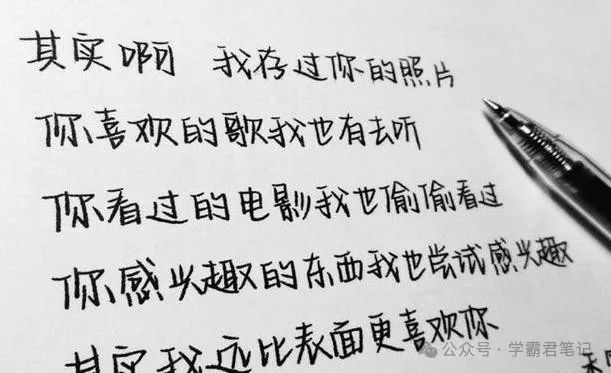 其实啊 我存过你的照片
你喜欢的歌我也有去听
你看过的电影我也偷偷看过
你感兴趣的东西我也尝试感兴趣
其实我远比表面更喜欢你
公众号·学霸君笔记